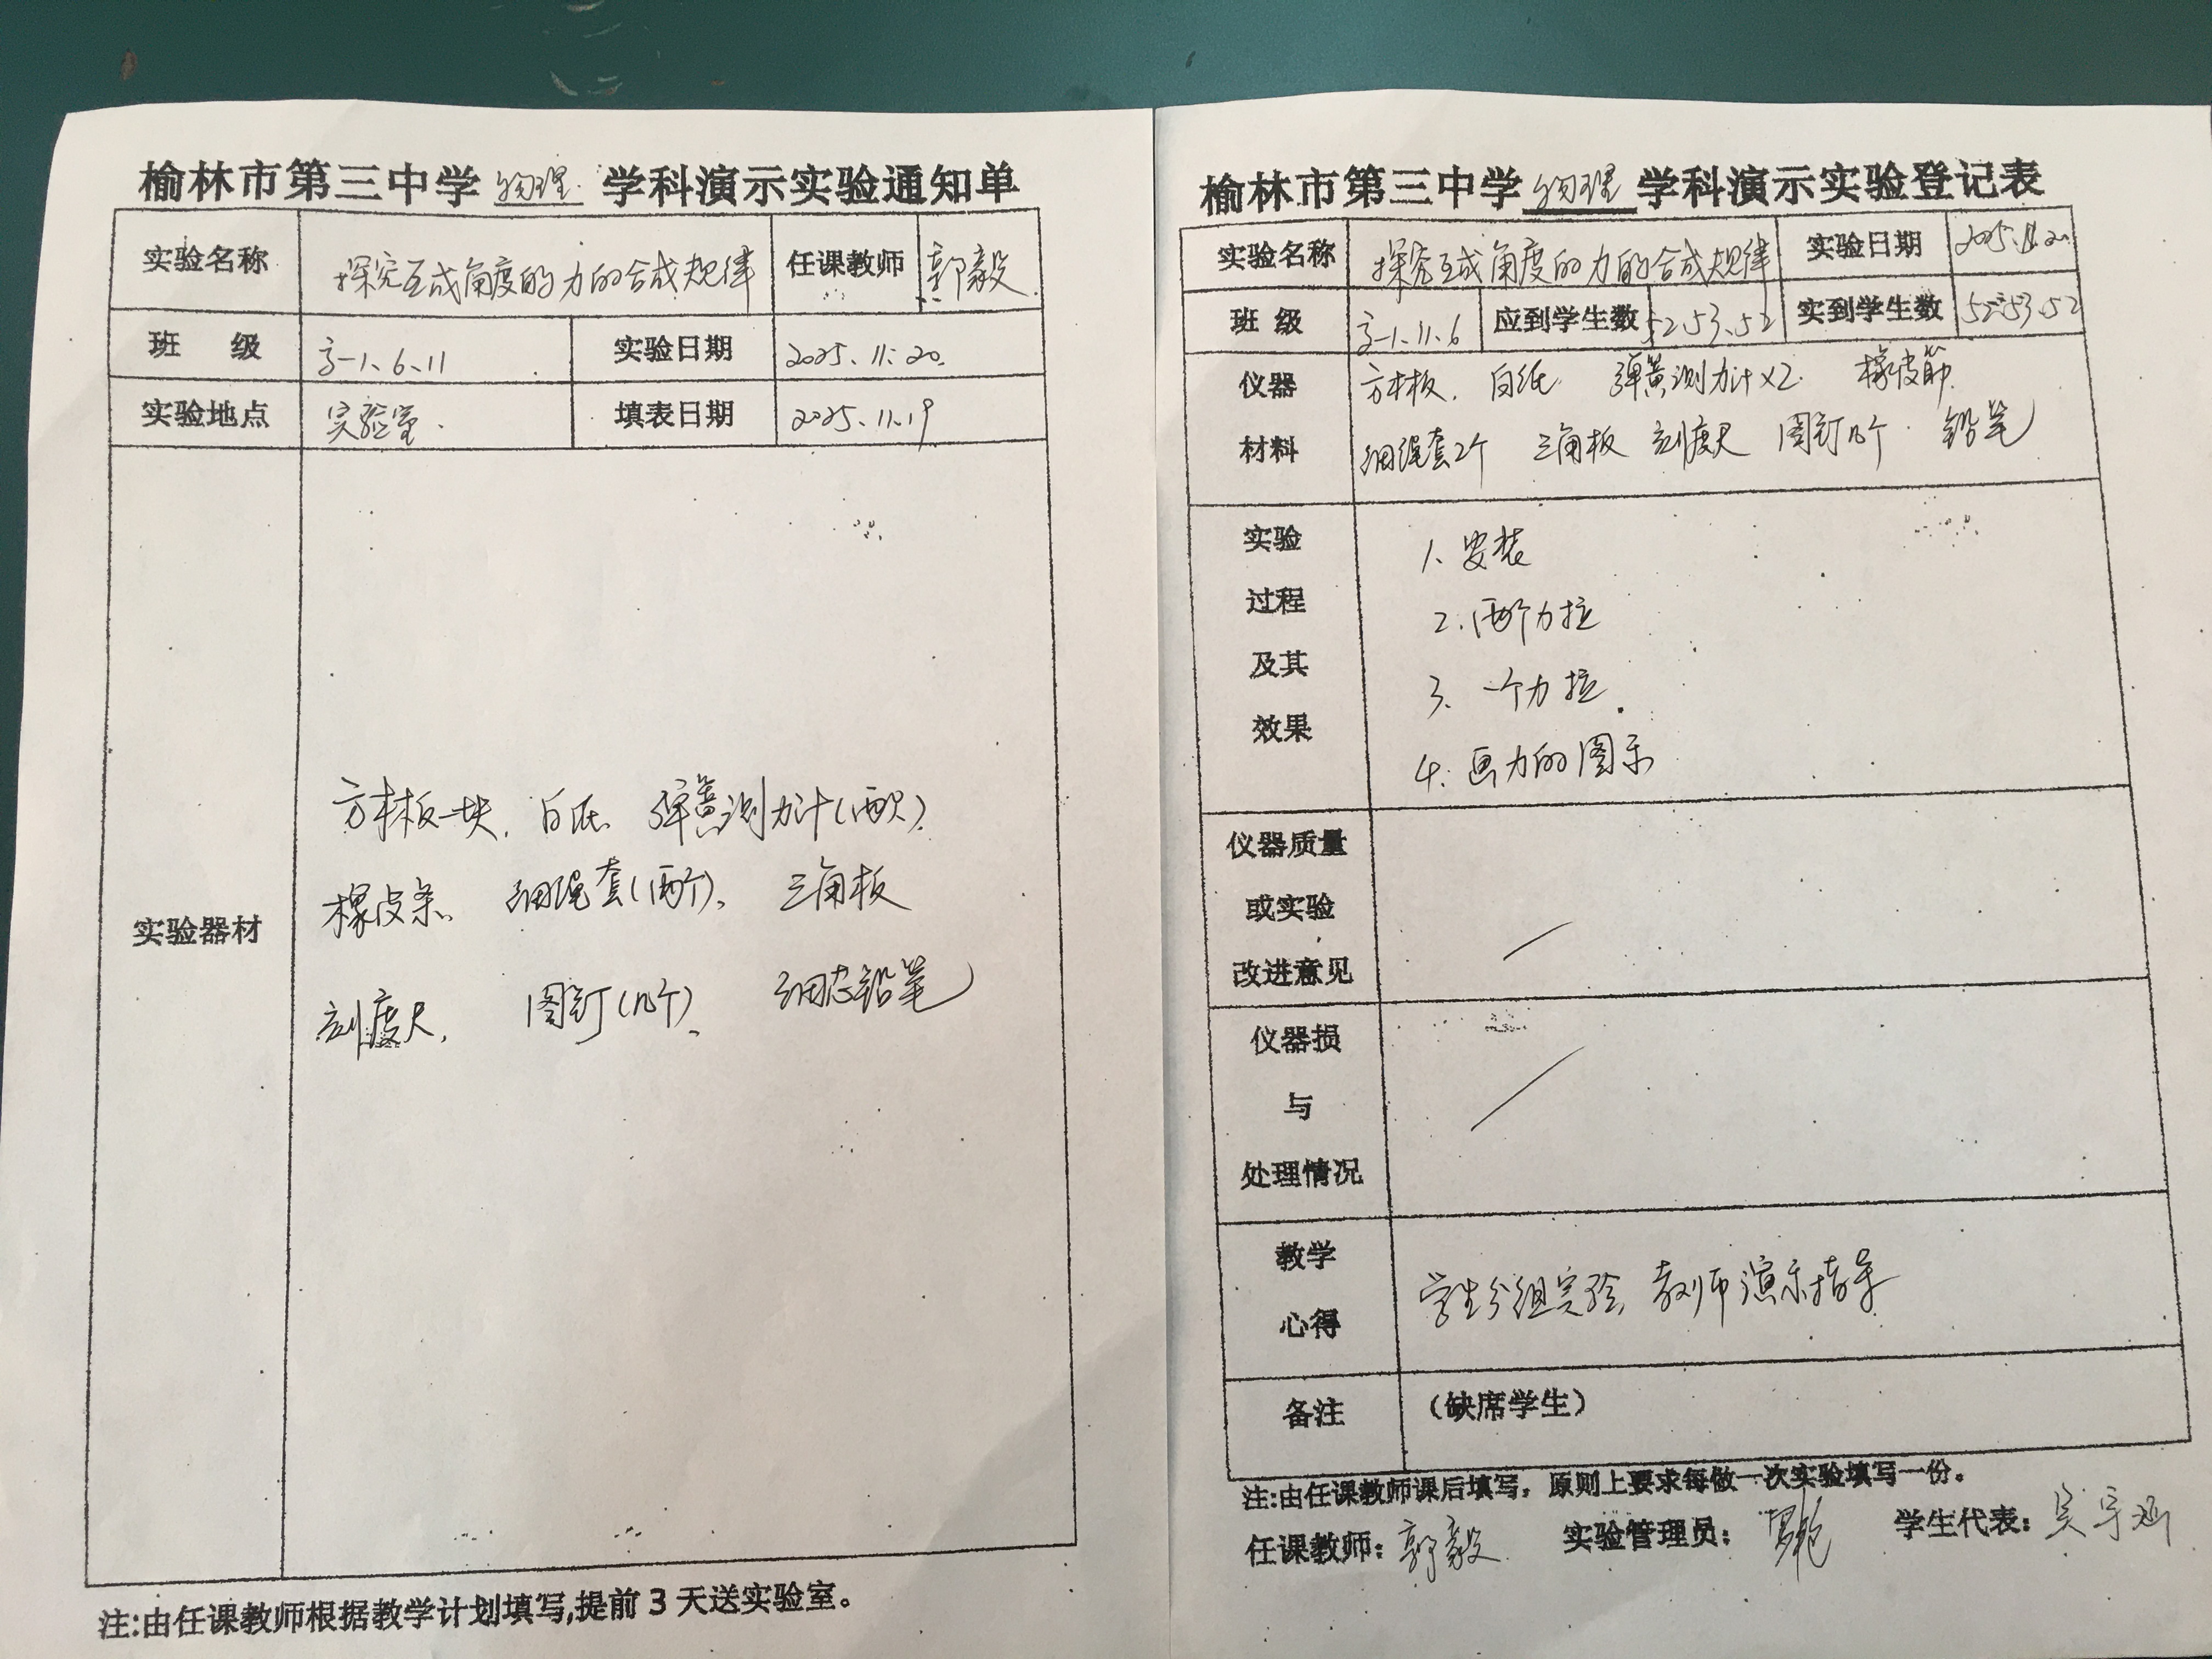 榆林市第三中学 物理 学科演示实验通知单
实验名称 探究互成角度的力的合成规律 任课教师 郭毅
班 级 高一1、6、11 实验日期 2025.11.20.
实验地点 实验室. 填表日期 2025.11.19
实验器材
方木板一块、白纸 弹簧测力计(两只)
橡皮条、 细绳套(两个)、 三角板
刻度尺, 图钉(几个)、 细芯铅笔
注:由任课教师根据教学计划填写,提前3天送实验室。
榆林市第三中学 物理 学科演示实验登记表
实验名称 探究互成角度的力的合成规律 实验日期 2025.11.20.
班 级 高一1、11、6 应到学生数 52、53、52 实到学生数 52、53、52
仪器 方木板. 白纸 弹簧测力计×2. 橡皮筋.
材料 细绳套2个 三角板 刻度尺 图钉几个. 铅笔
实验 1、安装
过程 2.两个力拉
及其 3、一个力拉.
效果 4.画力的图示
仪器质量
或实验
改进意见
仪器损
与
处理情况
教学
心得
学生分组实验,教师演示指导
备注 (缺席学生)
注:由任课教师课后填写，原则上要求每做一次实验填写一份。
任课教师: 郭毅 实验管理员: 学生代表: